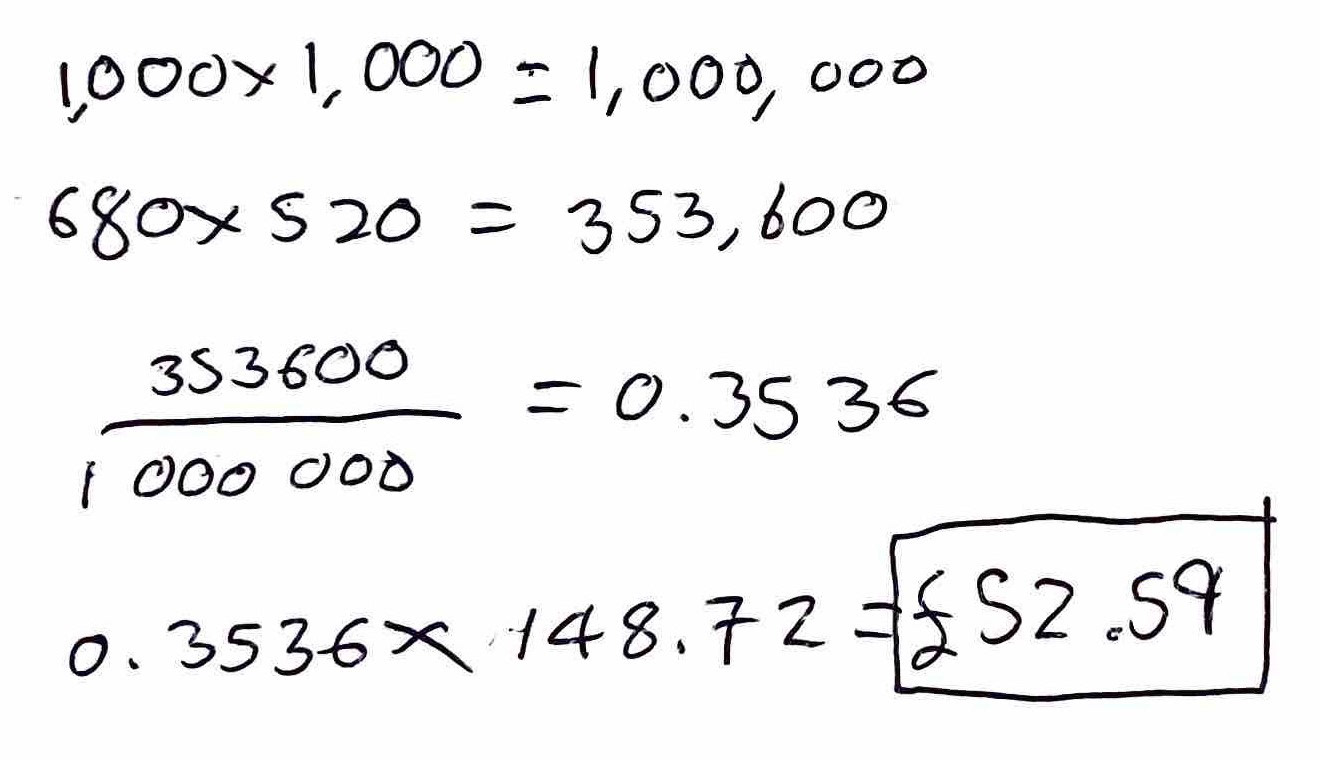 1,000 × 1,000 = 1,000,000
680 × 520 = 353,600
353600
1 000 000
= 0.3536
0.3536 × 148.72 = £52.59